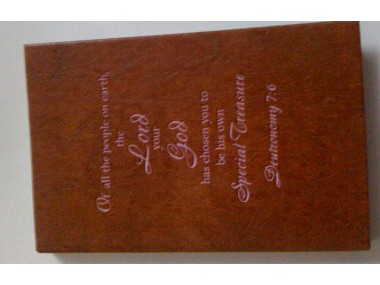 Of all the people on earth,
the
Lord
your
God
has chosen you to
be his own
Special Treasure
Deutronomy 7:6